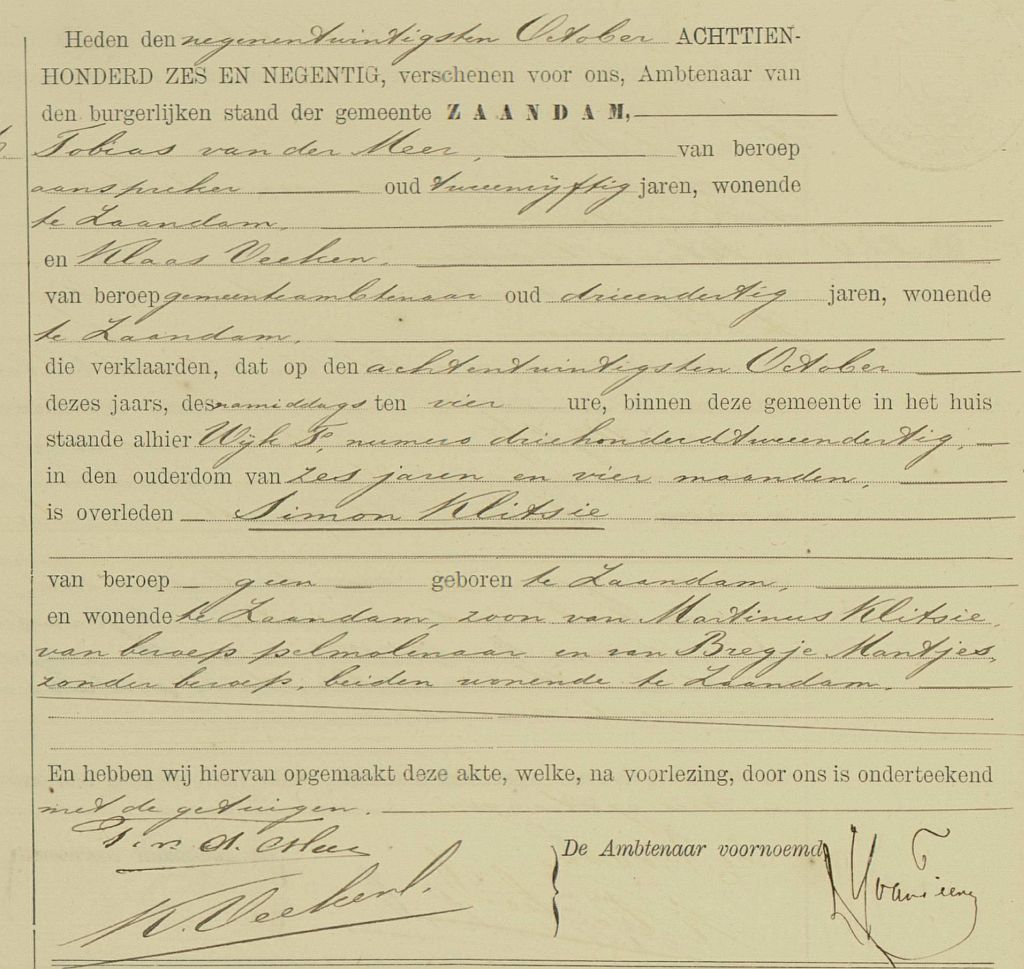 Heden den negenentwintigsten October ACHTTIEN-
HONDERD ZES EN NEGENTIG, verschenen voor ons, Ambtenaar van
den burgerlijken stand der gemeente ZAANDAM,
Tobias van der Meer, van beroep
aanspreker oud tweeenvijftig jaren, wonende
te Zaandam,
en Klaas Veeken,
van beroep gemeenteambtenaar oud drieendertig jaren, wonende
te Zaandam,
die verklaarden, dat op den achtentwintigsten October
dezes jaars, des namiddags ten vier ure, binnen deze gemeente in het huis
staande alhier Wijk F, numero driehonderdtweeendertig,
in den ouderdom van zes jaren en vier maanden,
is overleden Simon Klitsie
van beroep geen geboren te Zaandam,
en wonende te Zaandam, zoon van Martinus Klitsie,
van beroep pelmolenaar en van Bregje Mantjes,
zonder beroep, beiden wonende te Zaandam.
En hebben wij hiervan opgemaakt deze akte, welke, na voorlezing, door ons is onderteekend
met de getuigen.
T. v. d. Meer
De Ambtenaar voornoemd,
K. Veeken